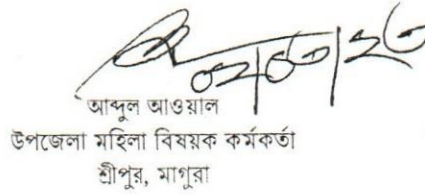 আব্দুল আওয়াল
উপজেলা মহিলা বিষয়ক কর্মকর্তা
শ্রীপুর, মাগুরা